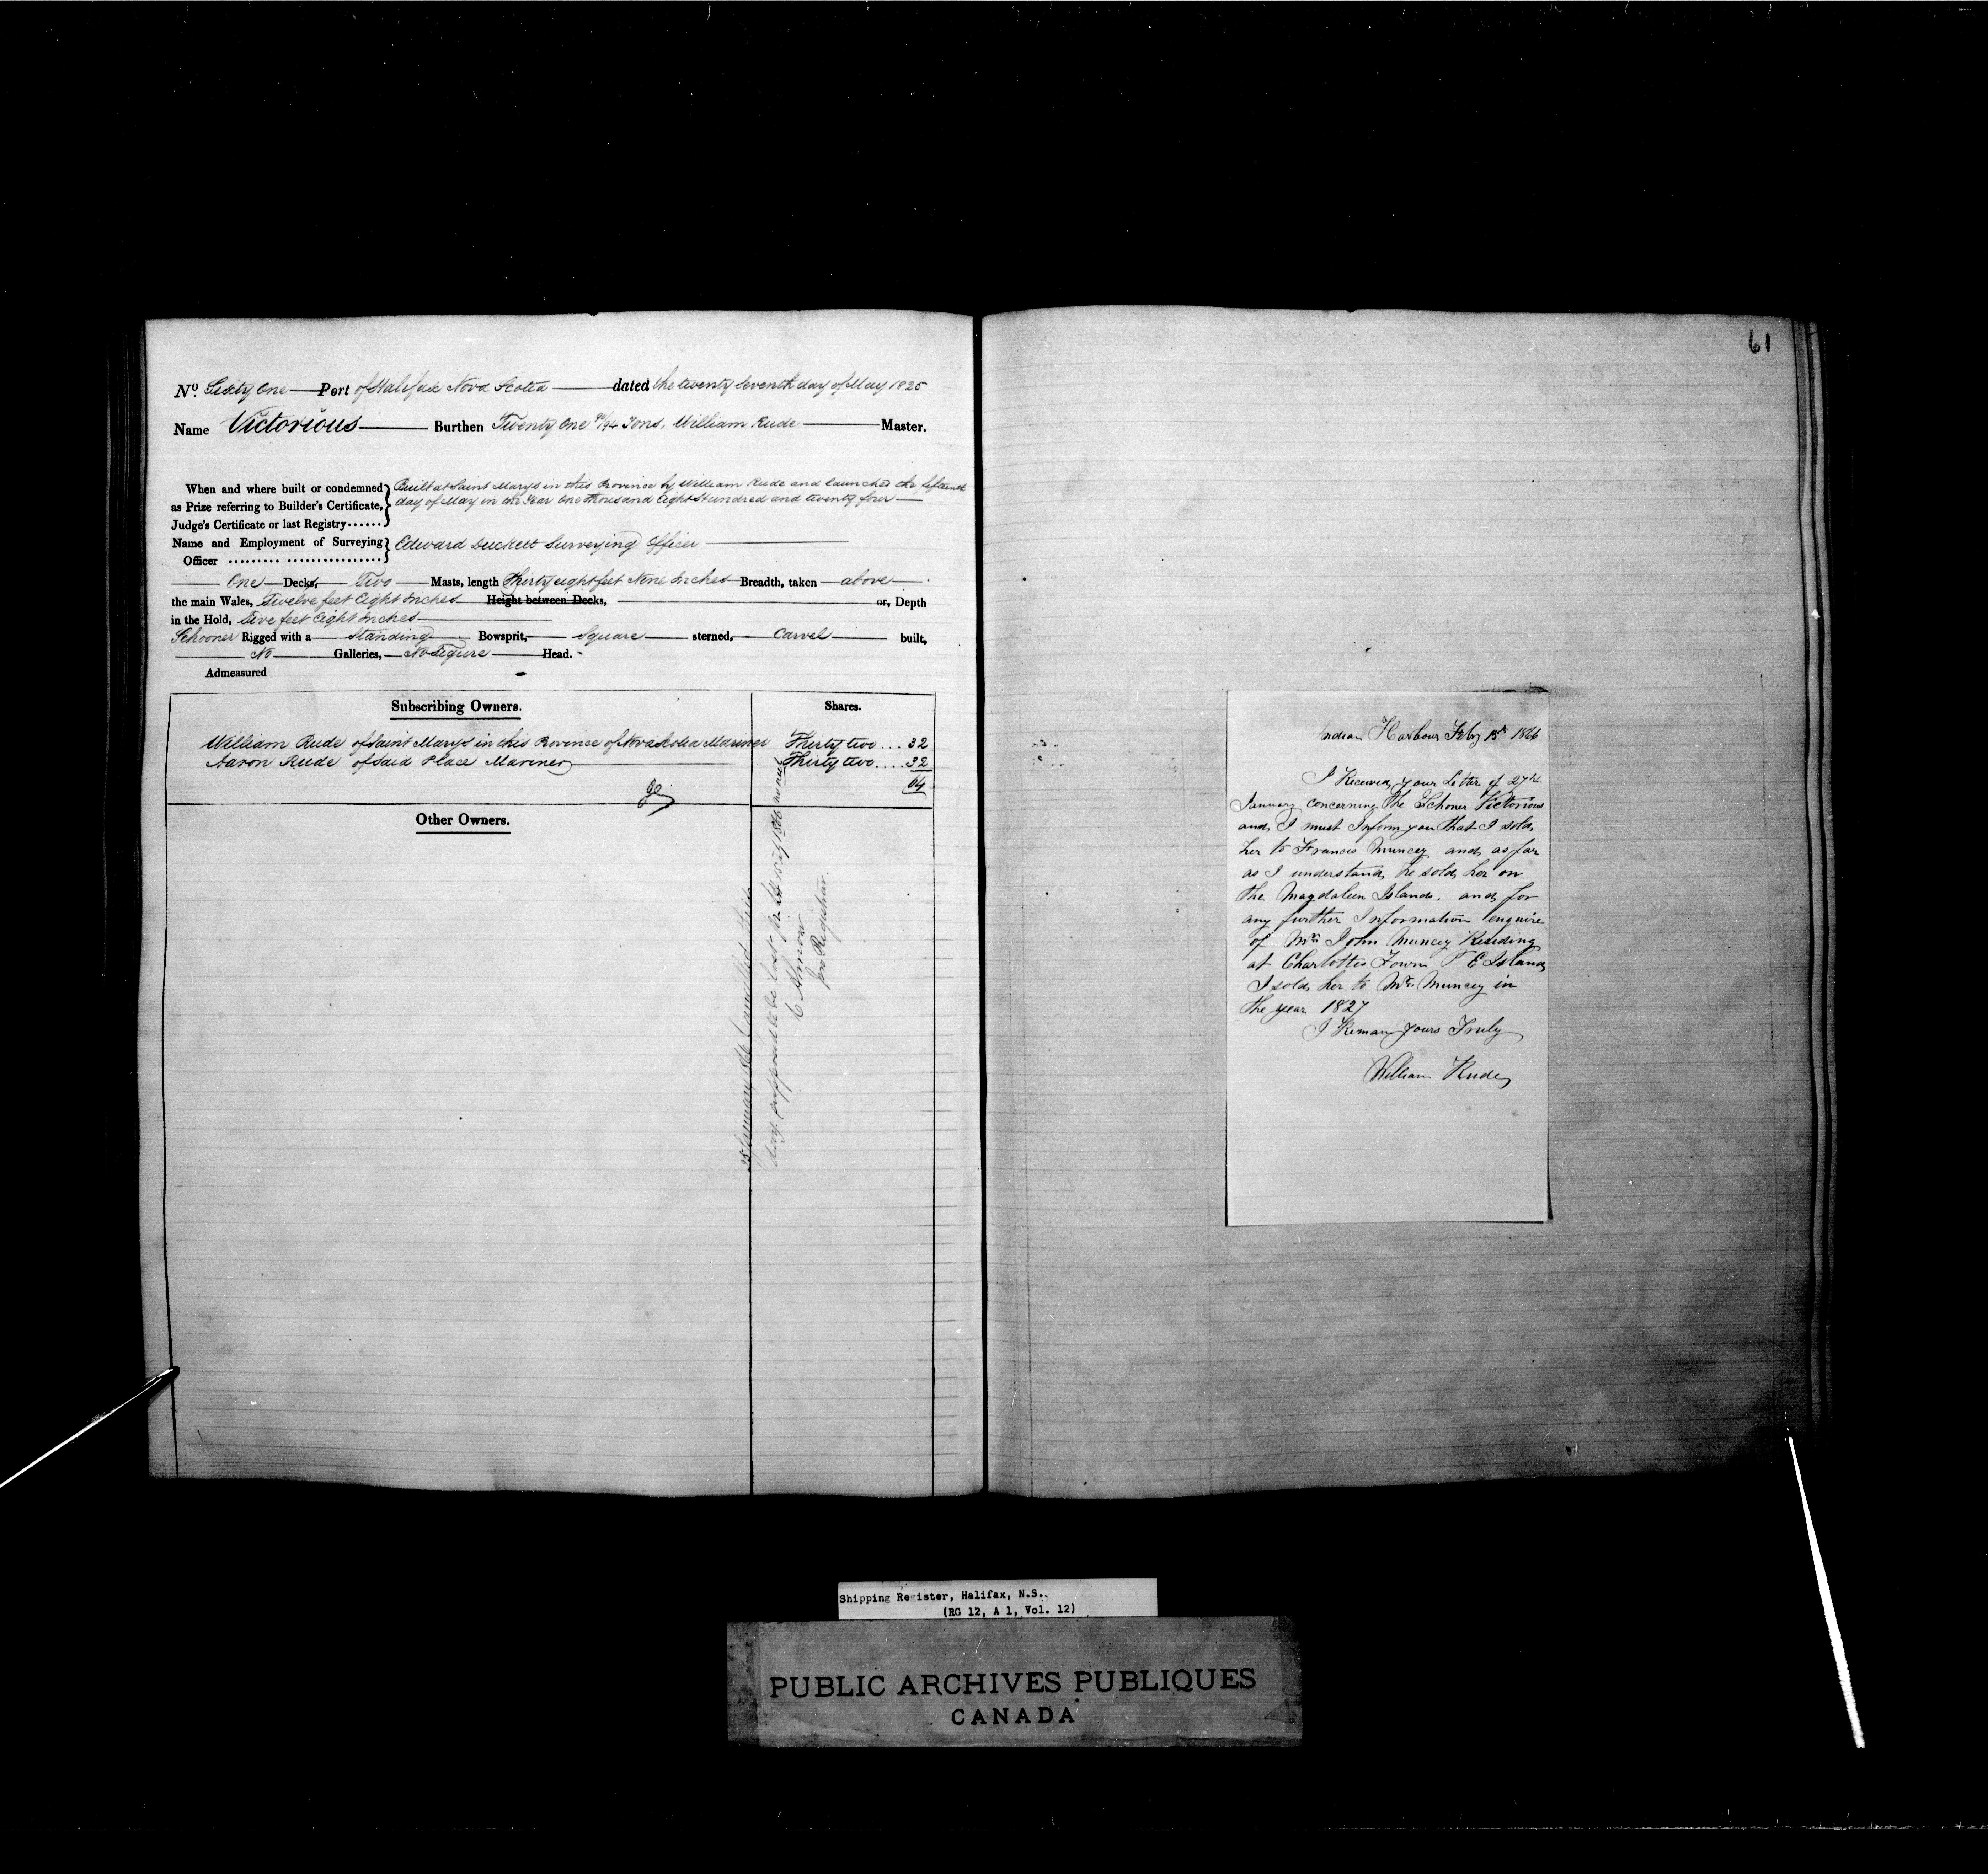 No. Sixty One Port of Halifax Nova Scotia dated the twenty seventh day of May 1825
Name Victorious Burthen Twenty One 90/94 Tons, William Rude Master.
When and where built or condemned as Prize referring to Builder's Certificate, Judge's Certificate or last Registry......
Built at Saint Marys in this Province by William Rude and launched the fifteenth
day of May in the Year One thousand Eight Hundred and twenty four
Name and Employment of Surveying Officer ......... ................
Edward Duckett Surveying Officer
One Decks, Two Masts, length Thirty eight feet Nine Inches Breadth, taken above
the main Wales, Twelve feet Eight Inches Height between Decks, or, Depth
in the Hold, Five feet Eight Inches
Schooner Rigged with a Standing Bowsprit, Square sterned, Carvel built,
No Galleries, No Figure Head.
Admeasured
Subscribing Owners. Shares.
William Rude of Saint Marys in this Province of Nova Scotia Mariner Thirty two .... 32
Aaron Rude of Said Place Mariner Thirty two .... 32
64
Other Owners.
January Cancelled this
day supposed to be lost
Registrar.
61
Indian Harbour Feby 15th 1866
I Received your Letter of 27th
January concerning the Schoner Victorious
and I must Inform you that I sold
her to Francis Muncey and as far
as I understand he sold her on
the Magdaleen Islands. and for
any further Information enquire
of Mr John Muncey Residing
at Charlotte Town P E Island
I sold her to Mr Muncey in
the year 1827
I Reman yours Truly
William Rude
Shipping Register, Halifax, N.S.
(RG 12, A 1, Vol. 12)
PUBLIC ARCHIVES PUBLIQUES
CANADA